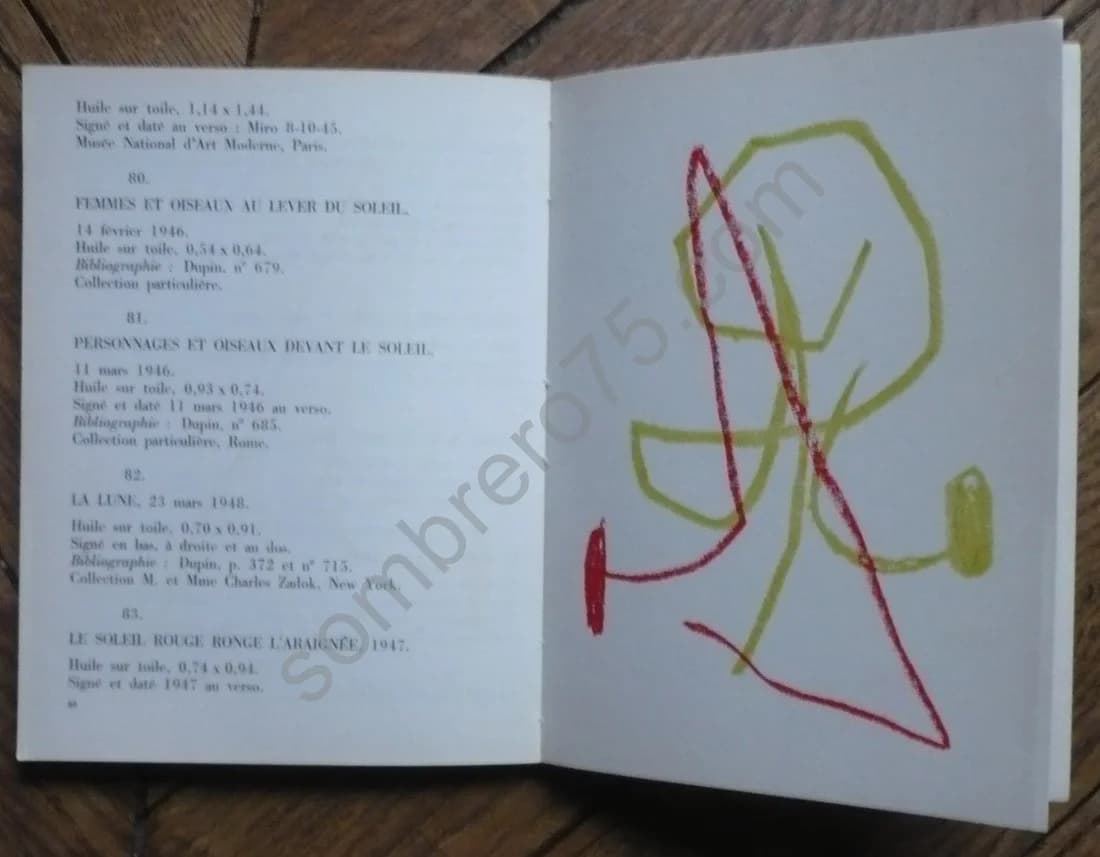 Huile sur toile, 1,14 x 1,44.
Signé et daté au verso : Miro 8-10-45.
Musée National d'Art Moderne, Paris.
80.
FEMMES ET OISEAUX AU LEVER DU SOLEIL,
14 février 1946.
Huile sur toile, 0,54 x 0,64.
Bibliographie : Dupin, n° 679.
Collection particulière.
81.
PERSONNAGES ET OISEAUX DEVANT LE SOLEIL,
11 mars 1946.
Huile sur toile, 0,93 x 0,74.
Signé et daté 11 mars 1946 au verso.
Bibliographie : Dupin, n° 685.
Collection particulière, Rome.
82.
LA LUNE, 23 mars 1948.
Huile sur toile, 0,70 x 0,91.
Signé en bas, à droite et au dos.
Bibliographie : Dupin, p. 372 et n° 715.
Collection M. et Mme Charles Zadok, New York.
83.
LE SOLEIL ROUGE RONGE L'ARAIGNÉE, 1947.
Huile sur toile, 0,74 x 0,94.
Signé et daté 1947 au verso.
sombrero75.com